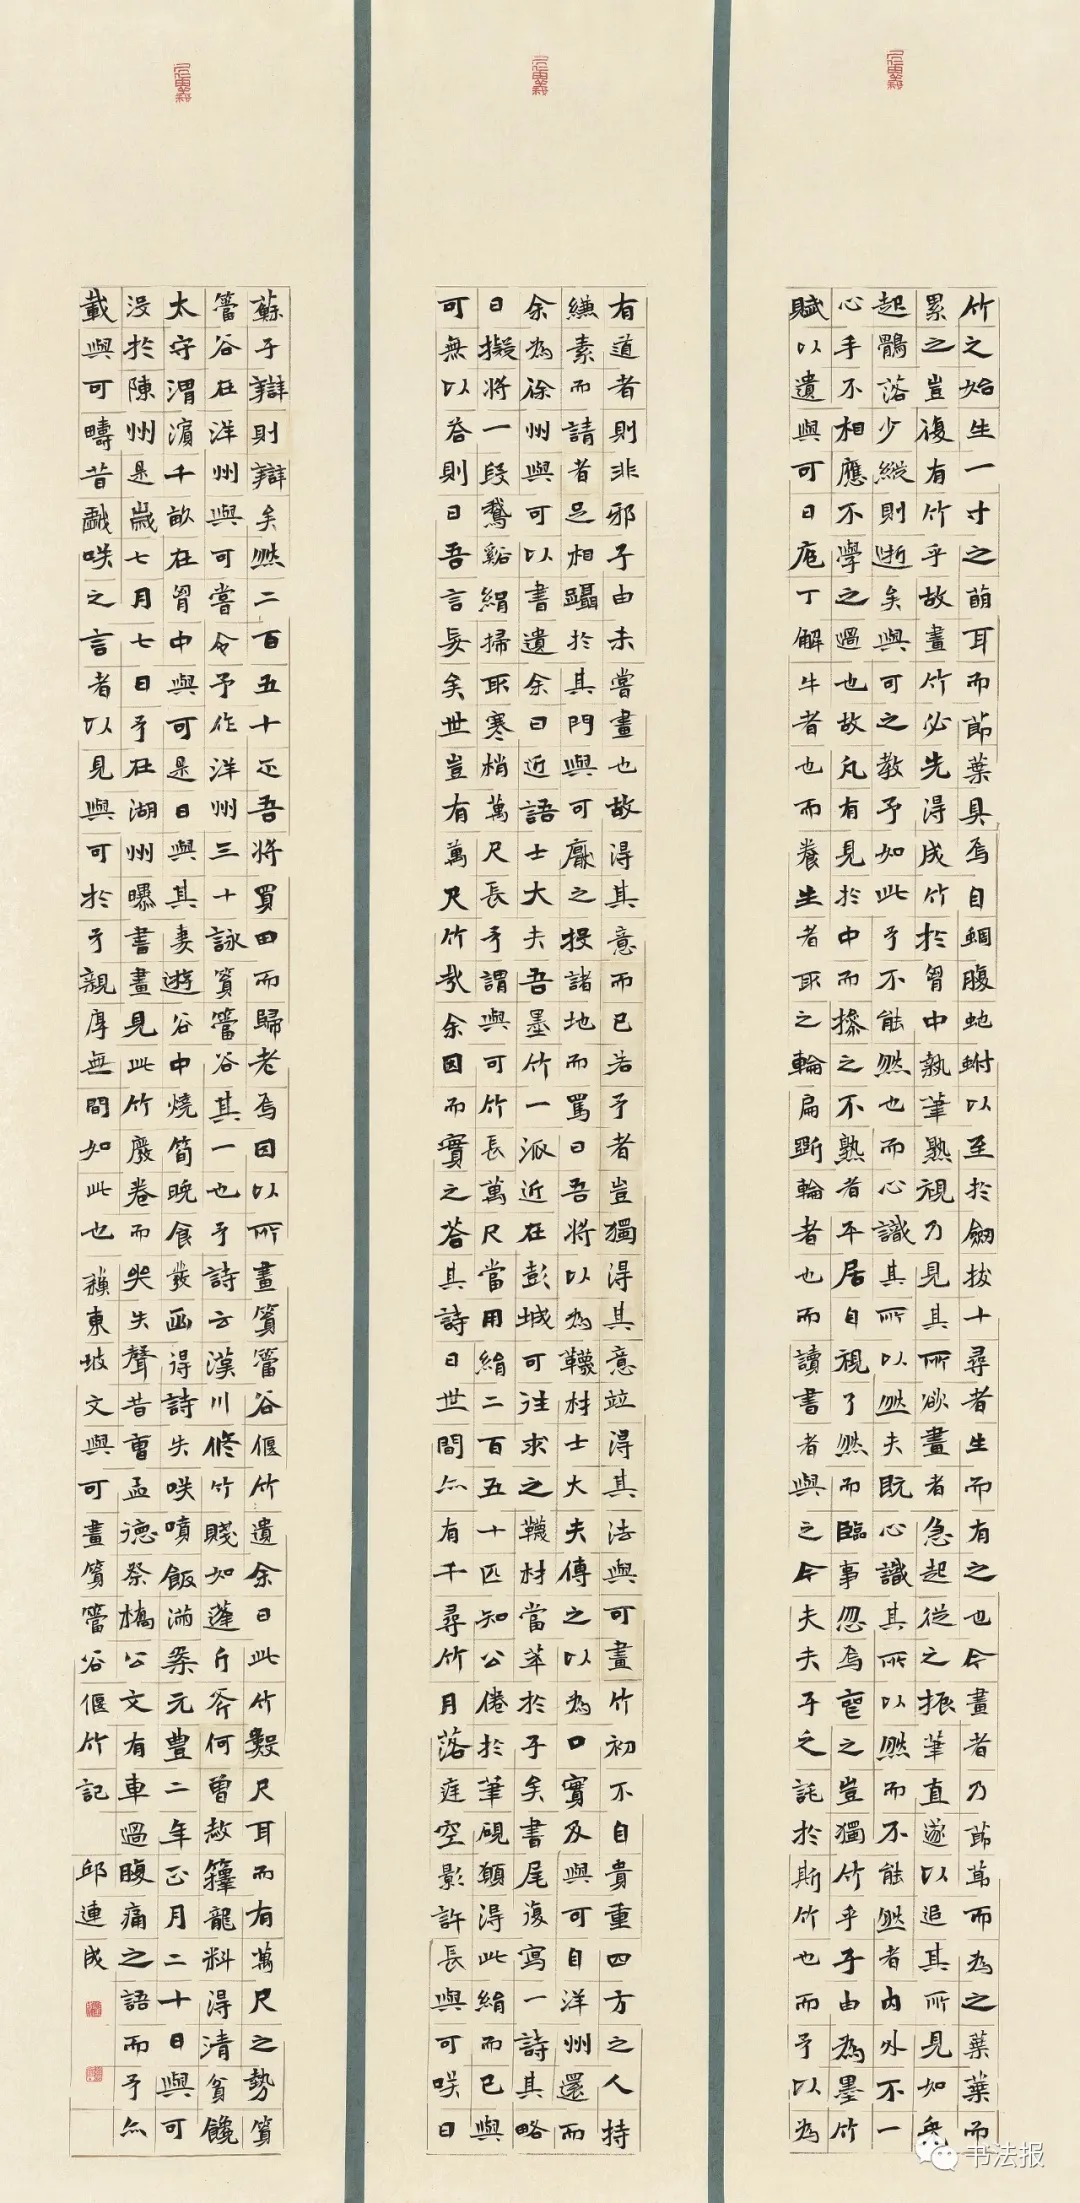 竹之始生一寸之萌耳而節葉具焉自蜩腹蛇蚹以至於劒拔十尋者生而有之也今畫者乃節節而為之葉葉而
累之豈復有竹乎故畫竹必先得成竹於胷中執筆熟視乃見其所欲畫者急起從之振筆直遂以追其所見如兔
起鶻落少縱則逝矣與可之教予如此予不能然也而心識其所以然夫既心識其所以然而不能然者內外不一
心手不相應不學之過也故凡有見於中而操之不熟者平居自視了然而臨事忽焉喪之豈獨竹乎子由為墨竹
賦以遺與可曰庖丁解牛者也而養生者取之輪扁斲輪者也而讀書者與之今夫夫子之託於斯竹也而予以為
有道者則非邪子由未嘗畫也故得其意而已若予者豈獨得其意竝得其法與可畫竹初不自貴重四方之人持
縑素而請者足相躡於其門與可厭之投諸地而罵曰吾將以為韈材士大夫傳之以為口實及與可自洋州還而
余為徐州與可以書遺余曰近語士大夫吾墨竹一派近在彭城可往求之韈材當萃於子矣書尾復寫一詩其略
曰擬將一段鵞谿絹掃取寒梢萬尺長予謂與可竹長萬尺當用絹二百五十匹知公倦於筆硯願得此絹而已與
可無以答則曰吾言妄矣世豈有萬尺竹哉余因而實之答其詩曰世間亦有千尋竹月落庭空影許長與可咲曰
蘇子辯則辯矣然二百五十匹吾將買田而歸老焉因以所畫篔簹谷偃竹遺余曰此竹數尺耳而有萬尺之勢篔
簹谷在洋州與可嘗令予作洋州三十詠篔簹谷其一也予詩云漢川修竹賤如蓬斤斧何曾赦籜龍料得清貧饞
太守渭濱千畝在胷中與可是日與其妻遊谷中燒筍晚食發函得詩失咲噴飯滿案元豐二年正月二十日與可
沒於陳州是歲七月七日予在湖州曝書畫見此竹廢卷而哭失聲昔曹孟德祭橋公文有車過腹痛之語而予亦
載與可疇昔戲咲之言者以見與可於予親厚無間如此也 蘇東坡文與可畫篔簹谷偃竹記 邱連成
书法报